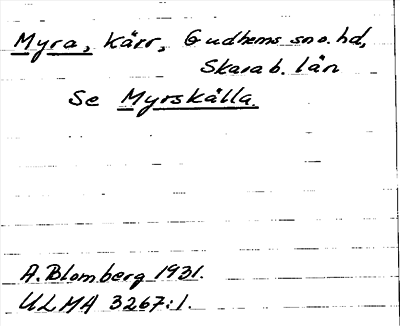 Myra, kärr, Gudhems sn o. hd,
Skarab. län
Se Myrskälla.
A. Blomberg 1931.
ULMA 3267:1.